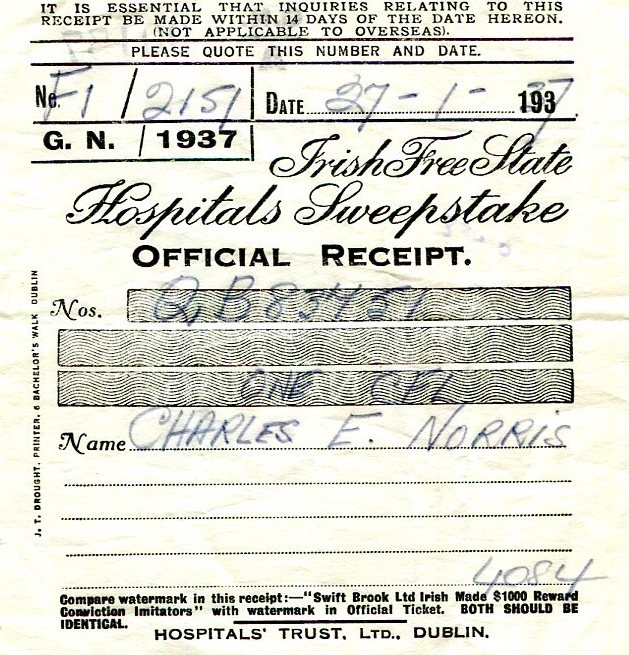 IT IS ESSENTIAL THAT INQUIRIES RELATING TO THIS
RECEIPT BE MADE WITHIN 14 DAYS OF THE DATE HEREON.
(NOT APPLICABLE TO OVERSEAS).
PLEASE QUOTE THIS NUMBER AND DATE.
No. F1 / 2151 DATE 27-1-1937
G. N. / 1937
Irish Free State
Hospitals Sweepstake
OFFICIAL RECEIPT.
Nos. QB83451
ONE
Name CHARLES E. NORRIS
4084
Compare watermark in this receipt:—"Swift Brook Ltd Irish Made $1000 Reward
Conviction Imitators" with watermark in Official Ticket. BOTH SHOULD BE
IDENTICAL.
HOSPITALS' TRUST, LTD., DUBLIN.
J. T. DROUGHT, PRINTER, 6 BACHELOR'S WALK DUBLIN